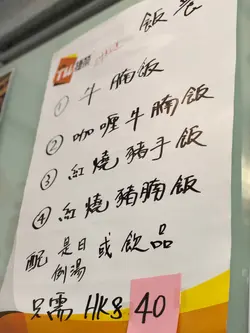 飯衣
TW 建榮
① 牛腩飯
② 咖喱牛腩飯
③ 紅燒豬手飯
④ 紅燒豬腩飯
配 是日例湯 或 飲品
只需 HK$ 40